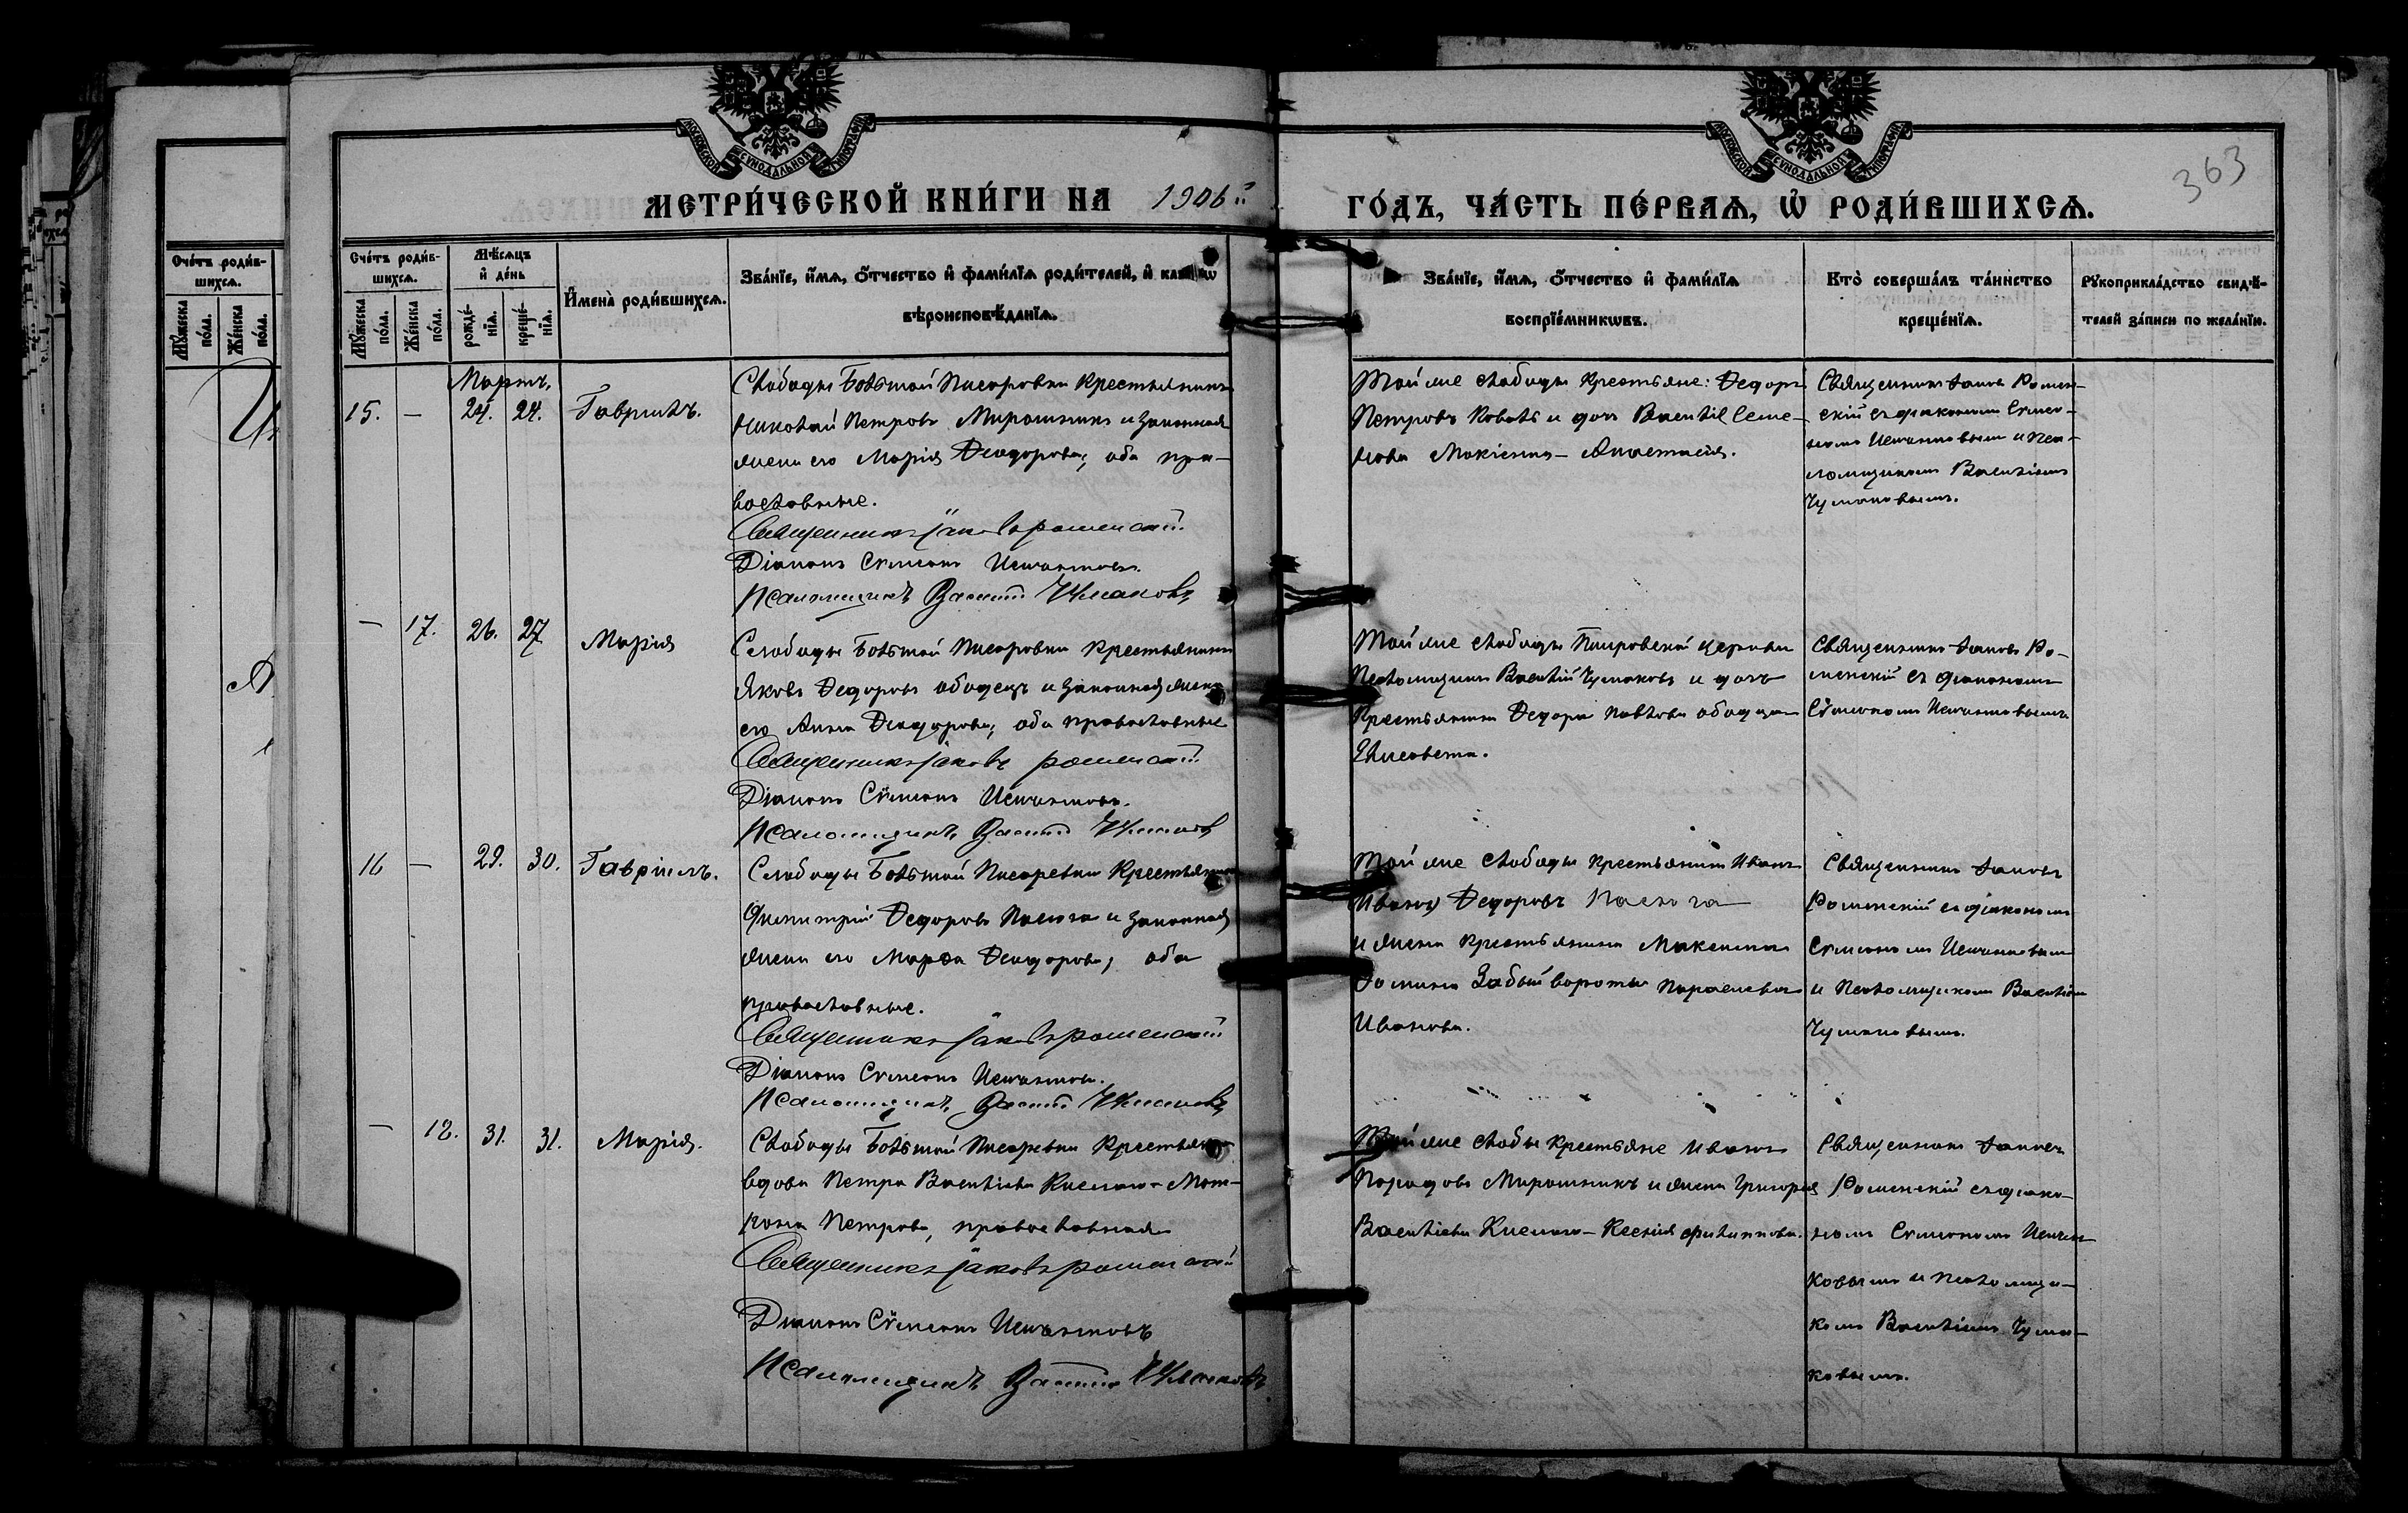 МЕТРИ́ЧЕСКОЙ КНИ́ГИ НА 1906й
ГО́ДЪ, ЧА́СТЬ ПЕ́РВАѦ, Ѡ РОДИ́ВШИХСѦ.
363
МОСКОВСКОЙ СѴНОДАЛЬНОЙ ТИПОГРАФІИ
МОСКОВСКОЙ СѴНОДАЛЬНОЙ ТИПОГРАФІИ
Сче́тъ роди́в-
шихсѧ.
Мꙋ́жеска по́ла.
Же́нска по́ла.
Сче́тъ роди́в-
шихсѧ.
Мꙋ́жеска по́ла.
Же́нска по́ла.
Мѣ́сѧцъ
и҆ де́нь
рожде́-
нїѧ.
креще́-
нїѧ.
И҆мена̀ роди́вшихсѧ.
Зва́нїе, и҆́мѧ, ѻ҆́тчество и҆ фами́лїѧ роди́телей, и҆
вѣроисповѣ́данїѧ.
Зва́нїе, и҆́мѧ, ѻ҆́тчество и҆ фами́лїѧ
воспрїе́мникѡвъ.
Кто̀ соверша́лъ та́инство
креще́нїѧ.
Рꙋкоприкла́дство свидѣ́-
телей за́писи по жела́нїю.
Мартъ.
15. — 24. 24. Гавріилъ.
Слободы Большой Писаровки крестьянинъ
Николай Петровъ Мирошникъ и законная
жена его Марія Ѳеодорова; оба пра-
вославные.
Священникъ Іаковъ Роменскій
Діаконъ Сѵмеонъ
Псаломщикъ Василій Чумаковъ
Той же слободы крестьяне: Ѳедоръ
Петровъ Коваль и дочь Василія Семе-
нова – Анастасія.
Священникъ Іаковъ Ромен-
скій съ діакономъ Сѵмео-
номъ и пса-
ломщикомъ Василіемъ
Чумаковымъ.
— 17. 26. 27 Марія
Слободы Большой Писаровки крестьянинъ
Яковъ Ѳедоровъ Ободецъ и законная жена
его Анна Ѳеодорова; оба православные
Священникъ Іаковъ Роменскій
Діаконъ Сѵмеонъ
Псаломщикъ Василій Чумаковъ
Той же слободы церкви
Псаломщикъ Василій Чумаковъ и дочь
Крестьянина Ѳедора Павлова
Елисавета.
Священникъ Іаковъ Ро-
менскій съ діакономъ
Сѵмеономъ
16 — 29. 30. Гавріилъ.
Слободы Большой Писаревки Крестьянинъ
Димитрій Ѳедоровъ Пасюга и законная
жена его Марѳа Ѳеодорова; оба
православные.
Священникъ Іаковъ Роменскій
Діаконъ Сѵмеонъ
Псаломщикъ Василій Чумаковъ
Той же слободы крестьянинъ Иванъ
Ѳедоровъ Пасюга
и жена крестьянина Максима
Ѳомина Забыйворота Параскева
Иванова.
Священникъ Іаковъ
Роменскій съ діакономъ
Сѵмеономъ
и Псаломщикомъ Василіемъ
Чумаковымъ.
— 18. 31. 31. Марія.
Слободы Большой Писаревки Крестьянка
вдова Петра Васильева – Мат-
рона Петрова, православная
Священникъ Іаковъ Роменскій
Діаконъ Сѵмеонъ
Псаломщикъ Василій Чумаковъ
Той же слобы крестьяне Иванъ
Мирошникъ и жена Григорія
Васильева – Ксенія Филиппова.
Священникъ Іаковъ
Роменскій съ діако-
номъ Сѵмеономъ
ковымъ и псаломщи-
комъ Василіемъ Чума-
ковымъ.